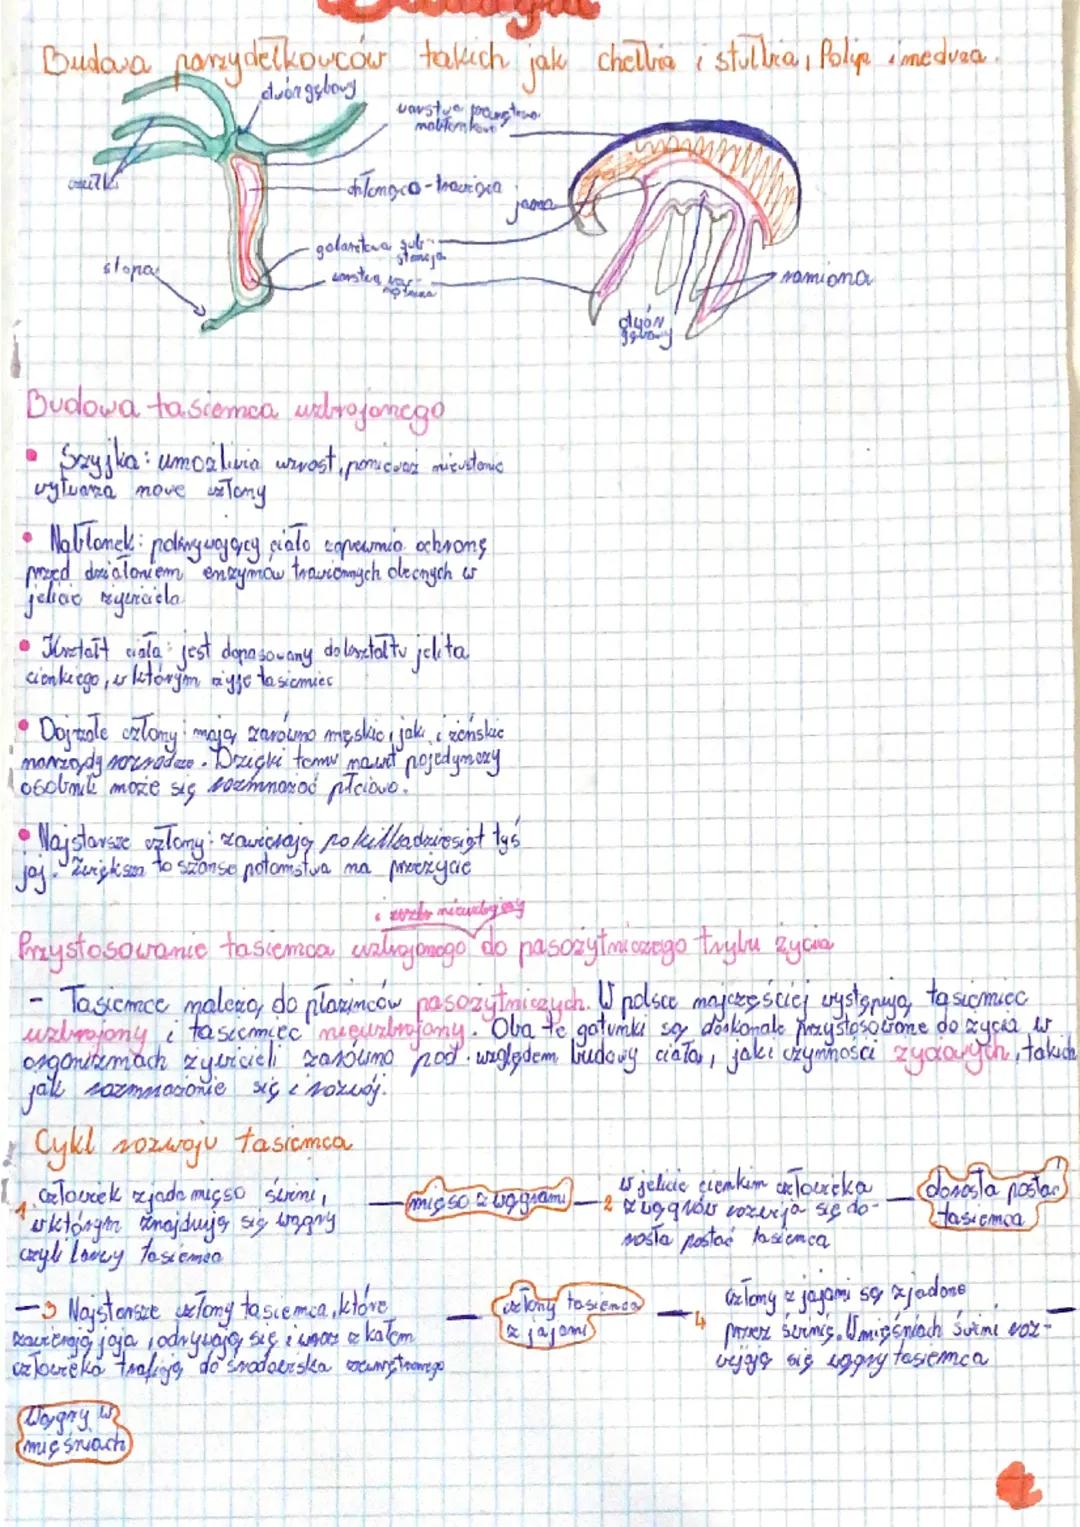 Budowa parzydełkowców takich jak chełbia i stułbia, Polip i meduza.
otwór gębowy
warstwa zewnętrzna
nabłonkowa
czułki
chłonąco-trawiąca
jama
galaretowa sub-
stancja
stopa
warstwa
ramiona
otwór
gębowy
Budowa tasiemca uzbrojonego
• Szyjka: umożliwia wzrost, ponieważ nieustanie
wytwarza nowe człony
• Nabłonek: pokrywający ciało zapewnia ochronę
przed działaniem enzymów trawiennych obecnych w
jelicie żywiciela
• Kształt ciała: jest dopasowany do kształtu jelita
cienkiego, w którym żyje tasiemiec
• Dojrzałe człony: mają zarówno męskie, jak i żeńskie
narządy rozrodcze. Dzięki temu nawet pojedynczy
osobnik może się rozmnażać płciowo.
• Najstarsze człony: zawierają po kilkadziesiąt tyś
jaj. Zwiększa to szanse potomstwa na przeżycie
Przystosowanie tasiemca uzbrojonego do pasożytniczego trybu życia
- Tasiemce należą do płazińców pasożytniczych. W polsce najczęściej występują tasiemiec
uzbrojony i tasiemiec nieuzbrojony. Oba te gatunki są doskonale przystosowane do życia w
organizmach żywicieli zarówno pod względem budowy ciała, jak i czynności życiowych, takich
jak rozmnażanie się i rozwój.
Cykl rozwoju tasiemca
1. Człowiek zjada mięso świni,
w którym znajdują się wągry
czyli larwy tasiemca
mięso z wągrami
2 w jelicie cienkim człowieka
z wągrów rozwija się do-
rosła postać tasiemca
dorosła postać
tasiemca
3 Najstarsze człony tasiemca, które
zawierają jaja, odrywają się i wraz z kałem
człowieka trafiają do środowiska zewnętrznego
człony tasiemca
z jajami
4 Człony z jajami są zjadane
przez świnię. W mięśniach świni roz-
wijają się wągry tasiemca
Wągry w
mięśniach